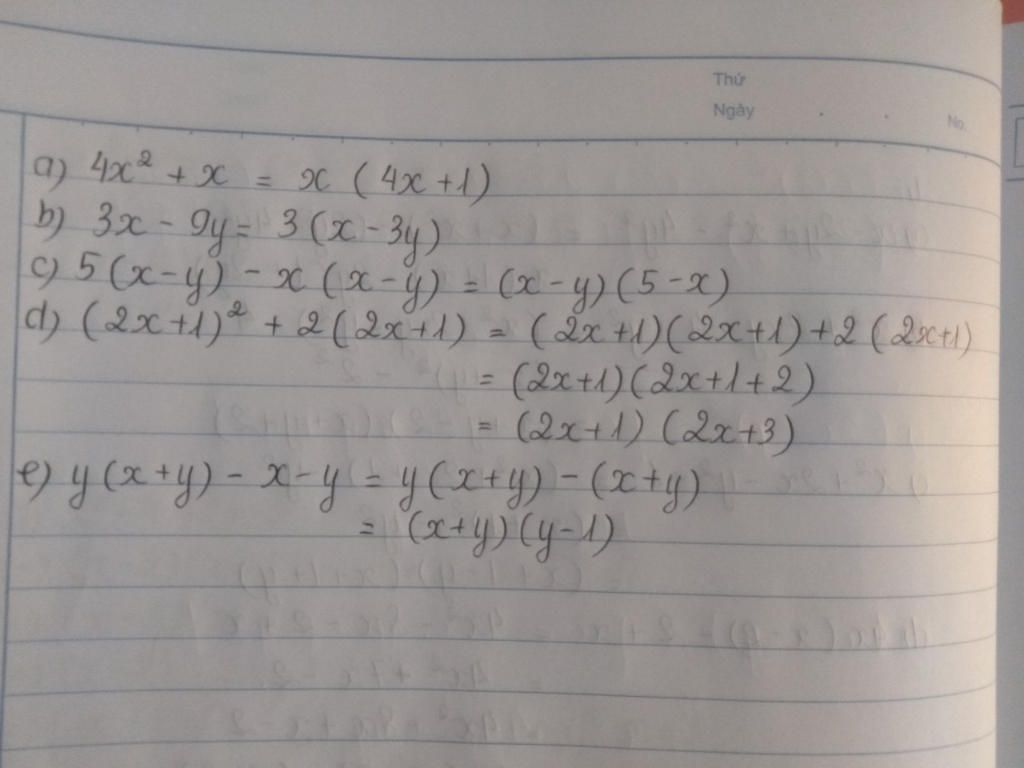 Thứ
Ngày
No.
a) 4x² + x = x (4x+1)
b) 3x - 9y = 3 (x - 3y)
c) 5 (x-y) - x (x-y) = (x-y)(5-x)
d) (2x+1)² + 2 (2x+1) = (2x+1)(2x+1) + 2 (2x+1)
= (2x+1)(2x+1+2)
= (2x+1) (2x+3)
e) y (x+y) - x - y = y (x+y) - (x+y)
= (x+y)(y-1)